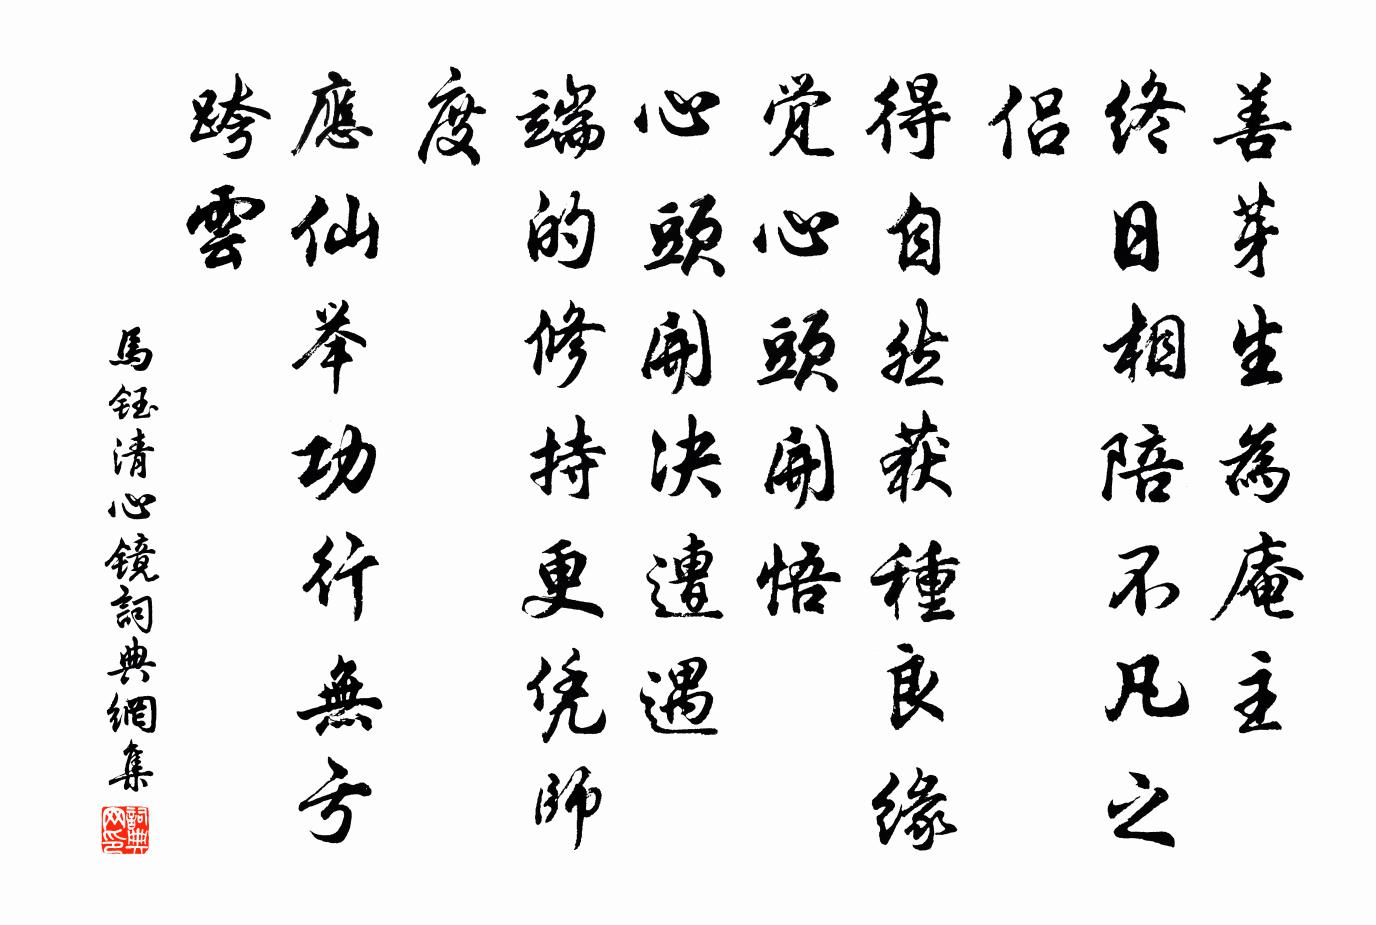 善芽生為庵主
終日相陪不凡之
侶
得自然获種良緣
覚心頭開悟
心頭開决遭遇
端的修持更凭師
度
應仙举功行無亏
跨雲
馬鈺清心镜詞典網集
詞典
网印